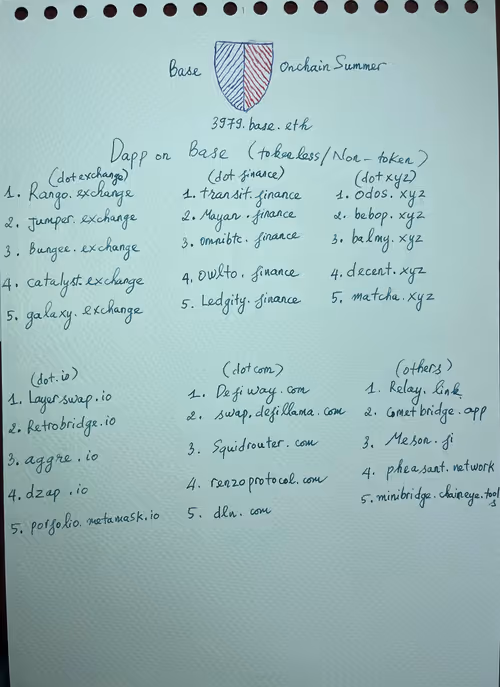 Base Onchain Summer
3979.base.eth
Dapp on Base (tokeless/Non-token)
(dot exchange)
1. Rango.exchange
2. Jumper.exchange
3. Bungee.exchange
4. catalyst.exchange
5. galaxy.exchange
(dot finance)
1. transit.finance
2. Mayan.finance
3. omnibtc.finance
4. Owlto.finance
5. Ledgity.finance
(dot xyz)
1. odos.xyz
2. bebop.xyz
3. balmy.xyz
4. decent.xyz
5. matcha.xyz
(dot.io)
1. Layerswap.io
2. Retrobridge.io
3. aggre.io
4. dzap.io
5. porfolio.metamask.io
(dot com)
1. Defiway.com
2. swap.defillama.com
3. Squidrouter.com
4. renzoprotocol.com
5. dln.com
(others)
1. Relay.link
2. Cometbridge.app
3. Meson.fi
4. pheasant.network
5. minibridge.chaineye.tools